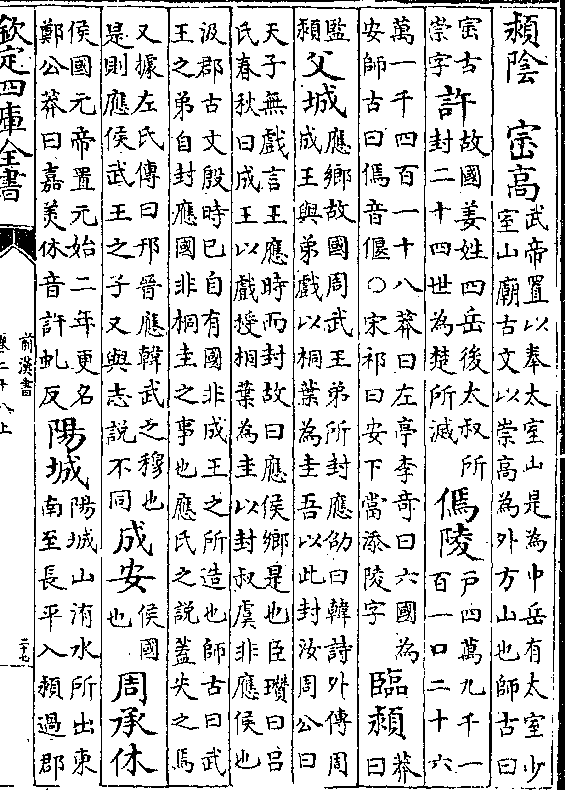 潁陰 崈高 武帝置以奉太室山是為中岳有太室少室山廟古文以崇高為外方山也師古曰
崈古崇字 許 故國姜姓四岳後太叔所封二十四世為楚所滅 傿陵 户四萬九千一百一口二十六
萬一千四百一十八莽曰左亭李竒曰六國為安師古曰傿音偃○宋祁曰安下當添陵字 臨潁 莽曰
監潁 父城 應鄉故國周武王弟所封應劭曰韓詩外傳周成王與弟戲以桐葉為圭吾以此封汝周公曰
天子無戲言王應時而封故曰應侯鄉是也臣瓚曰吕氏春秋曰成王以戲授桐葉為圭以封叔虞非應侯也
汲郡古文殷時已自有國非成王之所造也師古曰武王之弟自封應國非桐圭之事也應氏之説蓋失之焉
又據左氏傳曰邘晉應韓武之穆也是則應侯武王之子又與志説不同 成安 侯國也 周承休
侯國元帝置元始二年更名鄭公莽曰嘉美休音許虬反 陽城 陽城山洧水所出東南至長平入潁過郡
欽定四庫全書
前漢書
卷二十八上
二十七